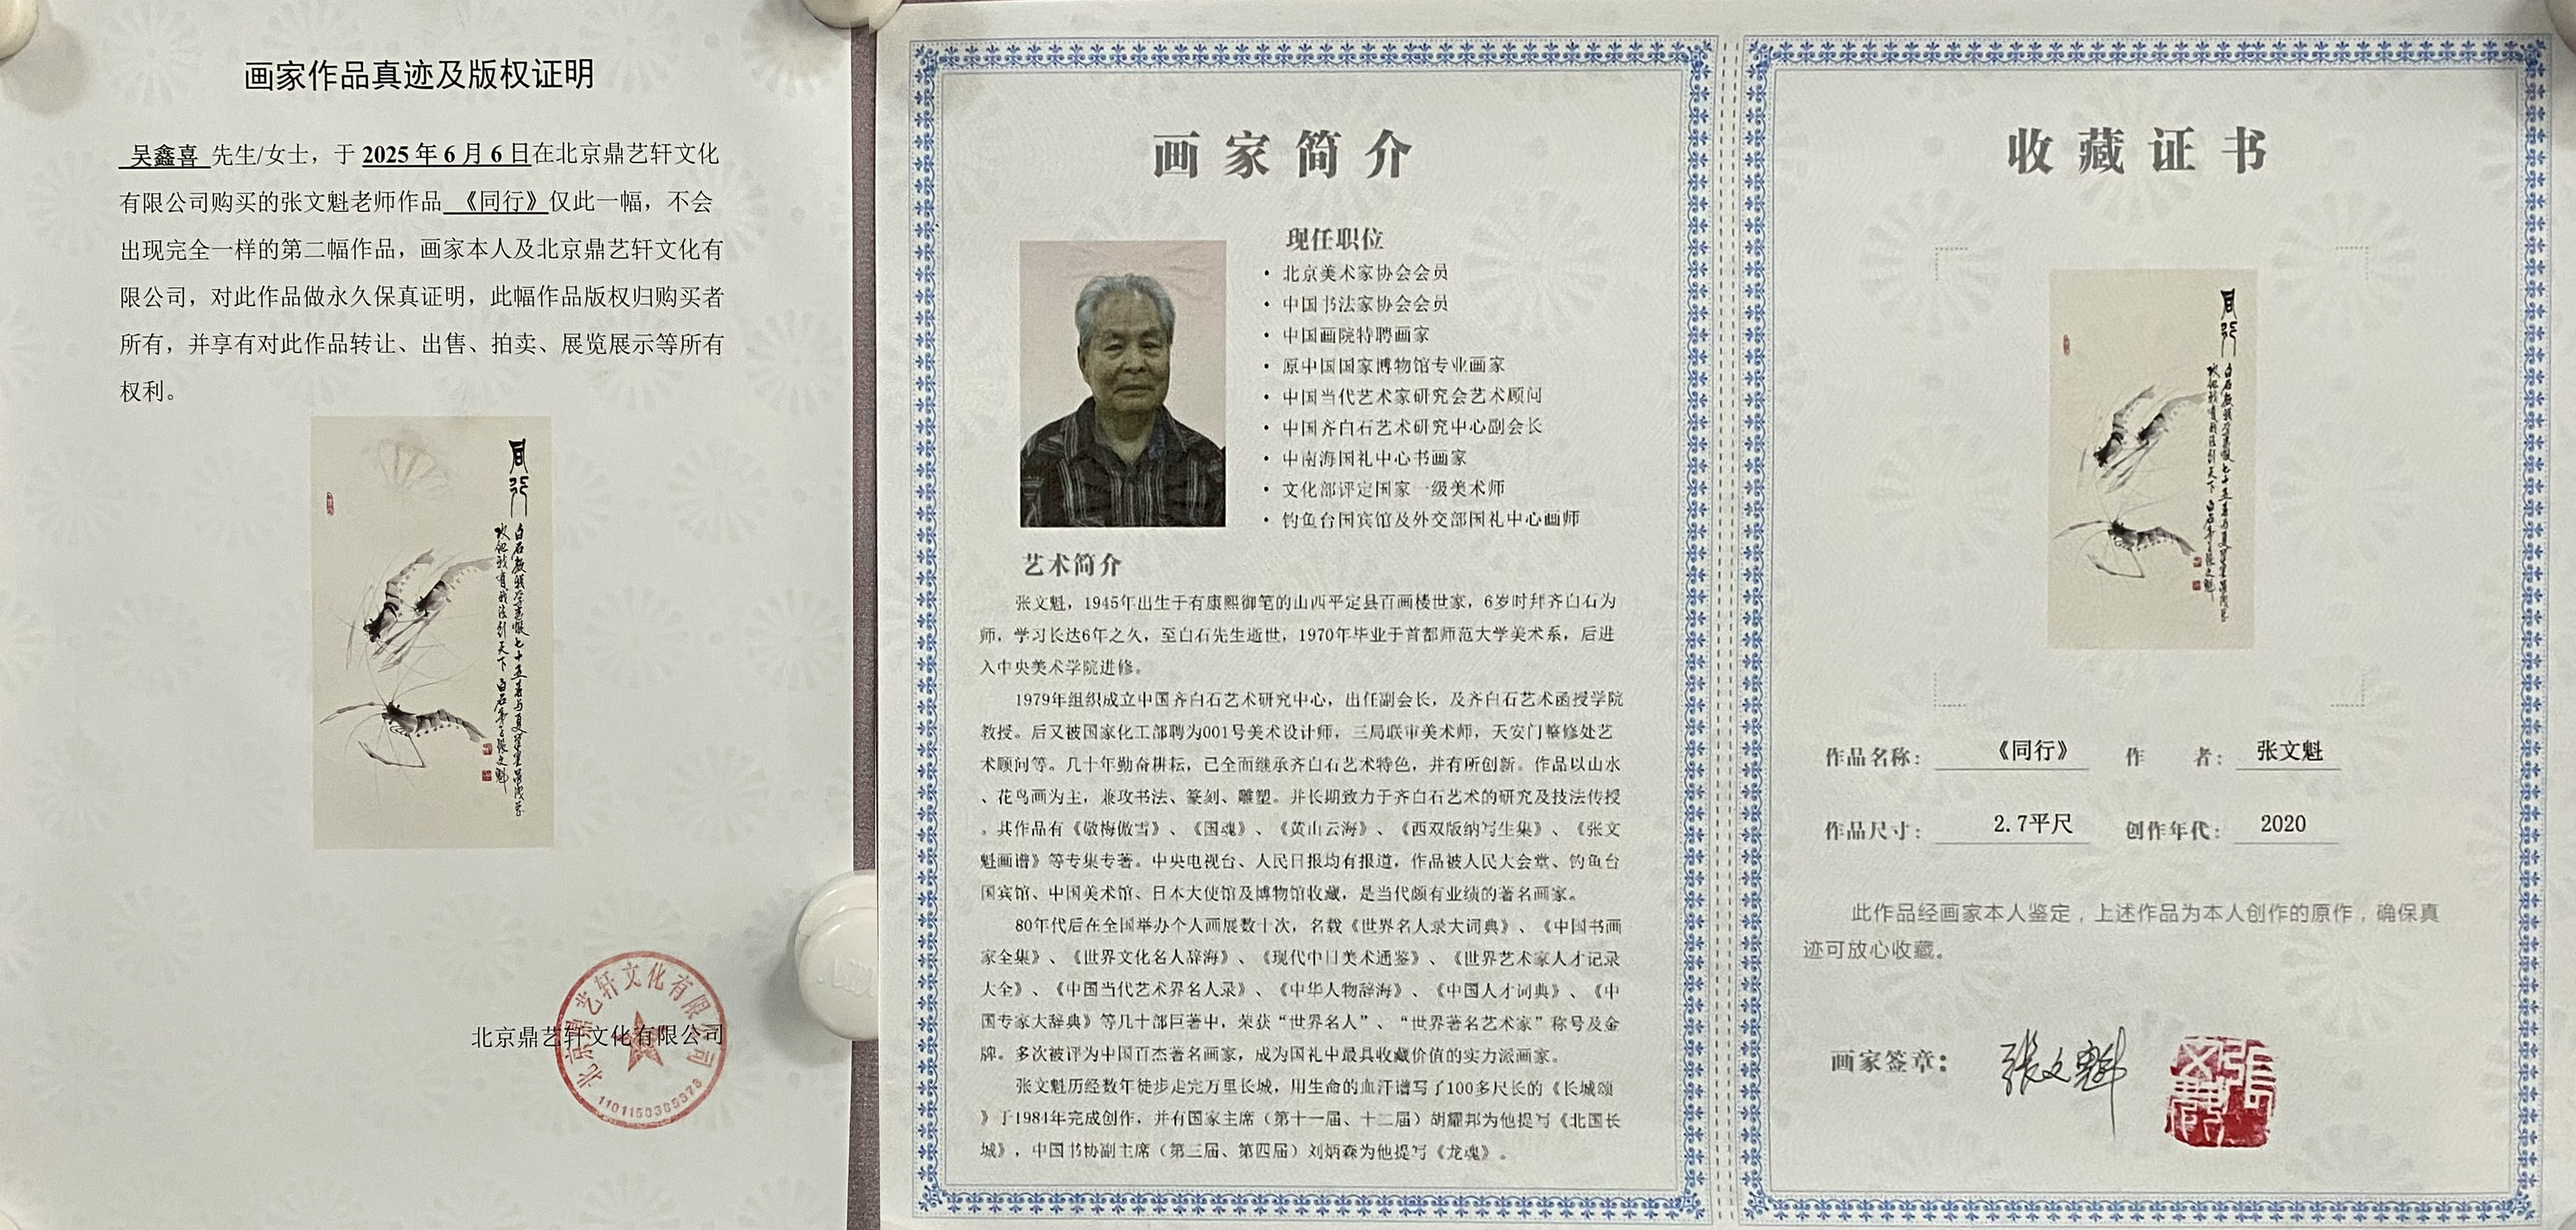 画家作品真迹及版权证明
吴鑫喜 先生/女士，于 2025 年 6 月 6 日在北京鼎艺轩文化
有限公司购买的张文魁老师作品 《同行》仅此一幅，不会
出现完全一样的第二幅作品，画家本人及北京鼎艺轩文化有
限公司，对此作品做永久保真证明，此幅作品版权归购买者
所有，并享有对此作品转让、出售、拍卖、展览展示等所有
权利。
同行
北京鼎艺轩文化有限公司
北京鼎艺轩文化有限公司
画家简介
现任职位
• 北京美术家协会会员
• 中国书法家协会会员
• 中国画院特聘画家
• 原中国国家博物馆专业画家
• 中国当代艺术家研究会艺术顾问
• 中国齐白石艺术研究中心副会长
• 中南海国礼中心书画家
• 文化部评定国家一级美术师
• 钓鱼台国宾馆及外交部国礼中心画师
艺术简介
张文魁，1945年出生于有康熙御笔的山西平定县百画楼世家，6岁时拜齐白石为
师，学习长达6年之久，至白石先生逝世，1970年毕业于首都师范大学美术系，后进
入中央美术学院进修。
1979年组织成立中国齐白石艺术研究中心，出任副会长，及齐白石艺术函授学院
教授。后又被国家化工部聘为001号美术设计师，三局联审美术师，天安门整修处艺
术顾问等。几十年勤奋耕耘，已全面继承齐白石艺术特色，并有所创新。作品以山水
、花鸟画为主，兼攻书法、篆刻、雕塑。并长期致力于齐白石艺术的研究及技法传授
。其作品有《敬梅傲雪》、《国魂》、《黄山云海》、《西双版纳写生集》、《张文
魁画谱》等专集专著。中央电视台、人民日报均有报道，作品被人民大会堂、钓鱼台
国宾馆、中国美术馆、日本大使馆及博物馆收藏，是当代颇有业绩的著名画家。
80年代后在全国举办个人画展数十次，名载《世界名人录大词典》、《中国书画
家全集》、《世界文化名人辞海》、《现代中日美术通鉴》、《世界艺术家人才记录
大全》、《中国当代艺术界名人录》、《中华人物辞海》、《中国人才词典》、《中
国专家大辞典》等几十部巨著中，荣获“世界名人”、“世界著名艺术家”称号及金
牌。多次被评为中国百杰著名画家，成为国礼中最具收藏价值的实力派画家。
张文魁历经数年徒步走完万里长城，用生命的血汗谱写了100多尺长的《长城颂
》于1984年完成创作，并有国家主席（第十一届、十二届）胡耀邦为他提写《北国长
城》，中国书协副主席（第三届、第四届）刘炳森为他提写《龙魂》。
收藏证书
同行
作品名称： 《同行》 作 者： 张文魁
作品尺寸： 2.7平尺 创作年代： 2020
此作品经画家本人鉴定，上述作品为本人创作的原作，确保真
迹可放心收藏。
画家签章： 张文魁
张文魁